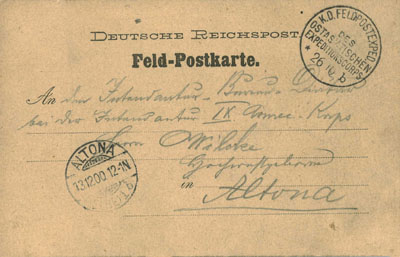 DEUTSCHE REICHSPOST
Feld-Postkarte.
K.D. FELDPOSTEXPED.
DES
OSTASIATISCHEN
EXPEDITIONSCORPS
26
b
An den Intendantur-Bureau-
bei der Intendantur IX. Armee-Korps
Herrn Wilcke
Hochwohlgeboren
in
Altona
ALTONA
13.12.00.12-1N